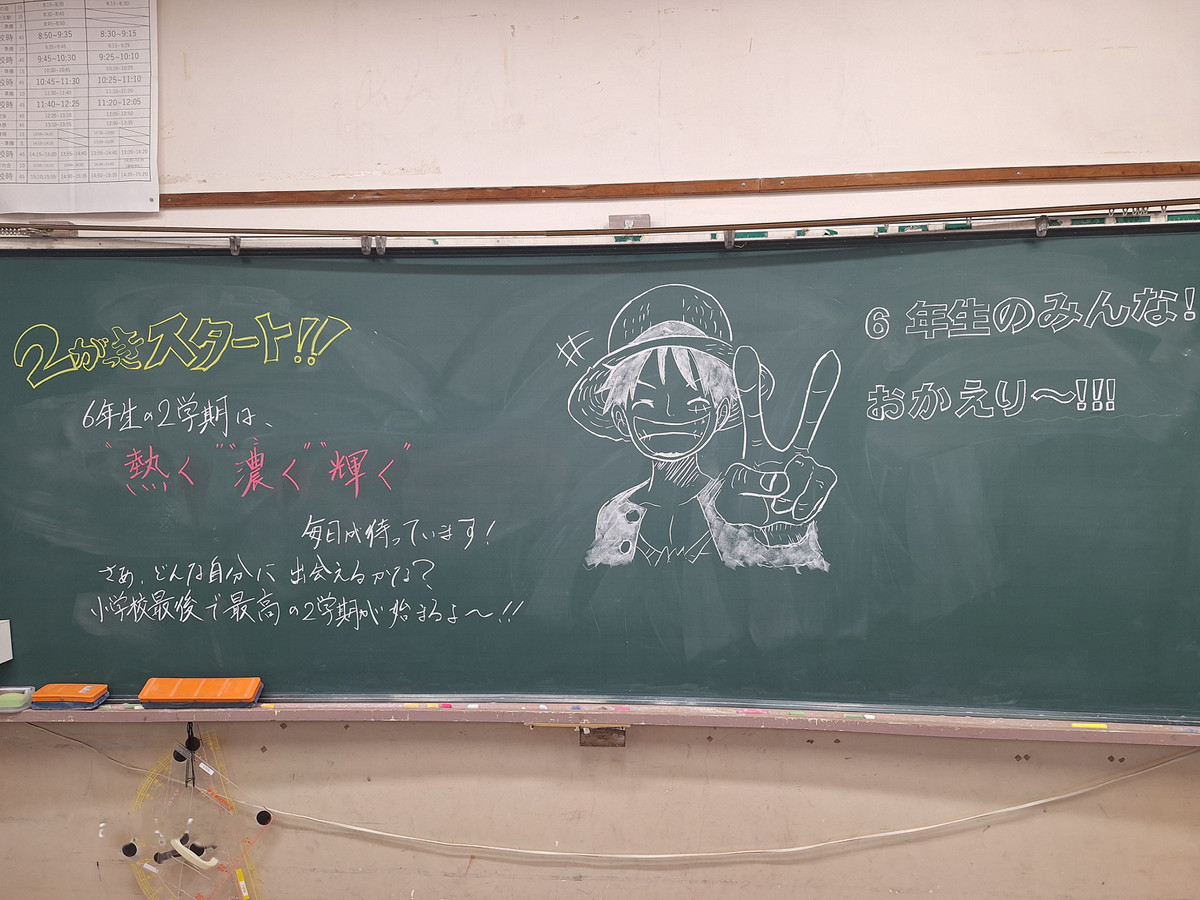 8:50~9:35 8:30~9:15
9:45~10:30 9:25~10:10
10:45~11:30 10:25~11:10
11:40~12:25 11:20~12:05
2がきスタート!!
6年生の2学期は、
"熱く" "濃く" "輝く"
毎日が待っています!
さあ、どんな自分に出会えるかな?
小学校最後で最高の2学期が始まるよ〜!!
6年生のみんな!
おかえり〜!!!